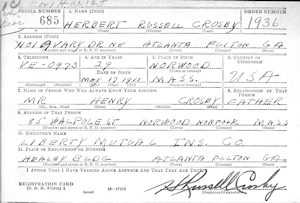 SERIAL NUMBER 1. NAME (Print) ORDER NUMBER
685 HERBERT RUSSELL CROSBY 1936
2. ADDRESS (Print)
DR NE ATLANTA FULTON GA.
3. TELEPHONE 4. AGE IN YEARS 5. PLACE OF BIRTH 6. COUNTRY OF CITIZENSHIP
VE-0973 29 NORWOOD
DATE OF BIRTH
MAY 17, 1911 MASS. USA
7. NAME OF PERSON WHO WILL ALWAYS KNOW YOUR ADDRESS 8. RELATIONSHIP OF THAT PERSON
MR. HENRY CROSBY FATHER
9. ADDRESS OF THAT PERSON
85 WALPOLE ST NORWOOD NORFOLK MASS
10. EMPLOYER'S NAME
LIBERTY MUTUAL INS. CO.
11. PLACE OF EMPLOYMENT OR BUSINESS
HEALEY BLDG ATLANTA FULTON GA.
I AFFIRM THAT I HAVE VERIFIED ABOVE ANSWERS AND THAT THEY ARE TRUE.
REGISTRATION CARD
D. S. S. Form 1
H Russell Crosby